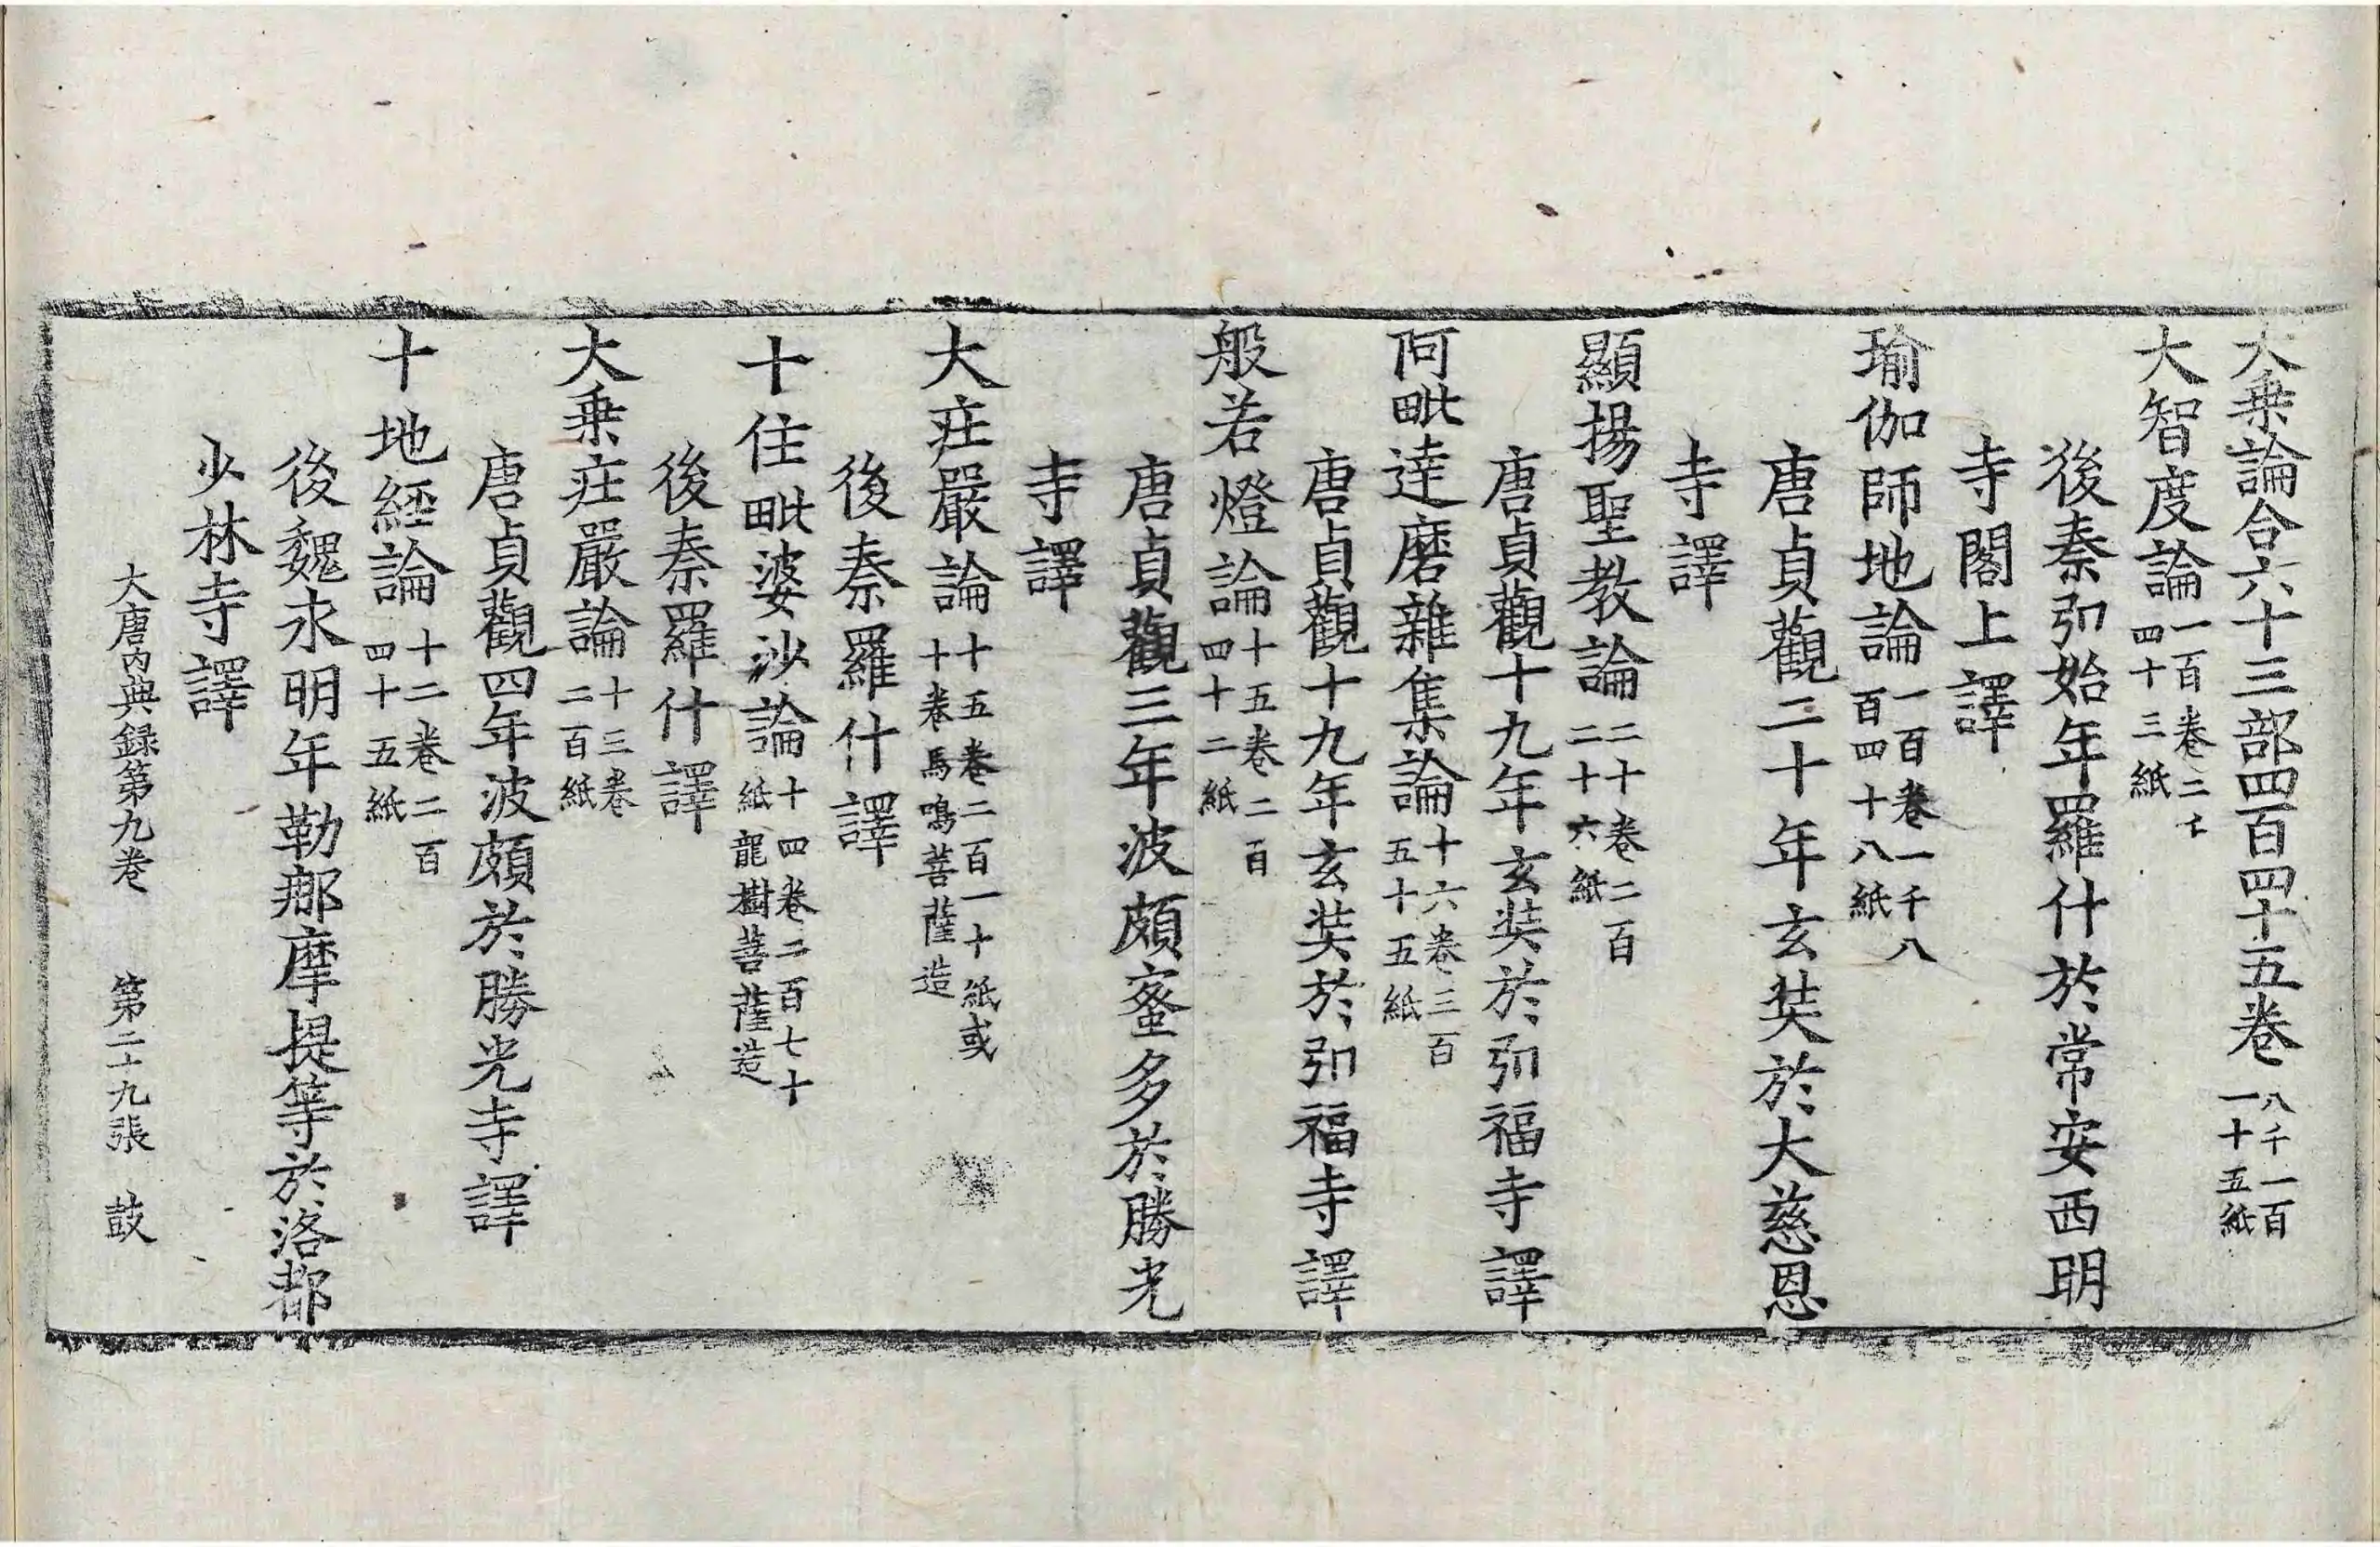 大乗論合六十三部四百四十五卷八千一百一十五紙
大智度論一百卷二千四十三紙
後秦弘始年羅什於常安西明
寺閣上譯
瑜伽師地論一百卷一千八百四十八紙
唐貞觀二十年玄奘於大慈恩
寺譯
顯揚聖教論二十卷二百二十六紙
唐貞觀十九年玄奘於弘福寺譯
阿毗達磨雜集論十六卷三百五十五紙
唐貞觀十九年玄奘於弘福寺譯
般若燈論十五卷二百四十二紙
唐貞觀三年波頗蜜多於勝光
寺譯
大莊嚴論十五卷二百一十紙或十卷馬鳴菩薩造
後秦羅什譯
十住毗婆沙論十四卷二百七十紙龍樹菩薩造
後秦羅什譯
大乗莊嚴論十三卷二百紙
唐貞觀四年波頗於勝光寺譯
十地經論十二卷二百四十五紙
後魏永明年勒那摩提等於洛都
少林寺譯
大唐内典録第九卷 第二十九張 鼓